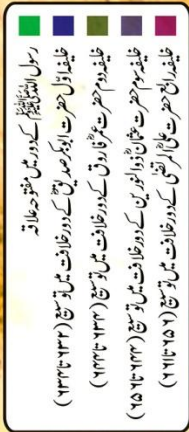 رسول اللہ ﷺ کے دور میں مفتوحہ علاقہ
خلیفہ اوّل حضرت ابوبکر صدیقؓ کے دور خلافت میں توسیع (۶۳۲ تا ۶۳۴)
خلیفہ دوم حضرت عمر فاروقؓ کے دور خلافت میں توسیع (۶۳۴ تا ۶۴۴)
خلیفہ سوم حضرت عثمان ذوالنورینؓ کے دور خلافت میں توسیع (۶۴۴ تا ۶۵۶)
خلیفہ رابع حضرت علی المرتضیٰؓ کے دور خلافت میں توسیع (۶۵۶ تا ۶۶۱)